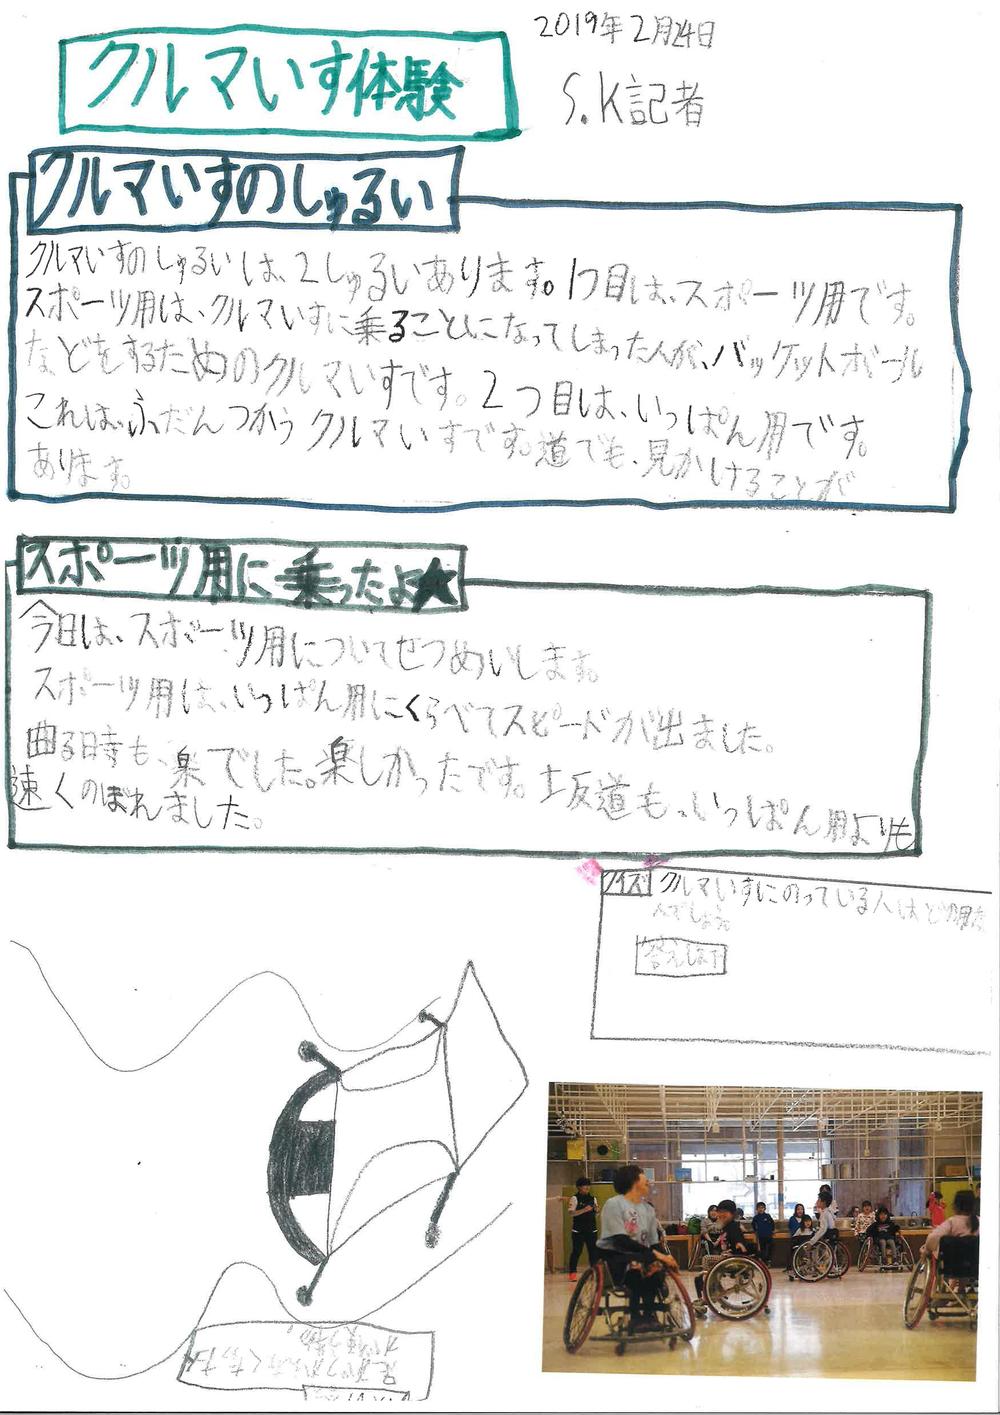 2019年2月24日
クルマいす体験
S.K記者
クルマいすのしゅるい
クルマいすのしゅるいは、2しゅるいあります。1つ目は、スポーツ用です。
スポーツ用は、クルマいすに乗ることになってしまった人が、バッケットボール
などをするためのクルマいすです。2つ目は、いっぱん用です。
これは、ふだんつかうクルマいすです。道でも、見かけることが
あります。
スポーツ用に乗ったよ★
今日は、スポーツ用についてせつめいします。
スポーツ用は、いっぱん用にくらべてスピードが出ました。
曲る時も、楽でした。楽しかったです。上坂道も、いっぱん用よりも
速くのぼれました。
クイズ クルマいすにのっている人は
んでしょう。
答えは下